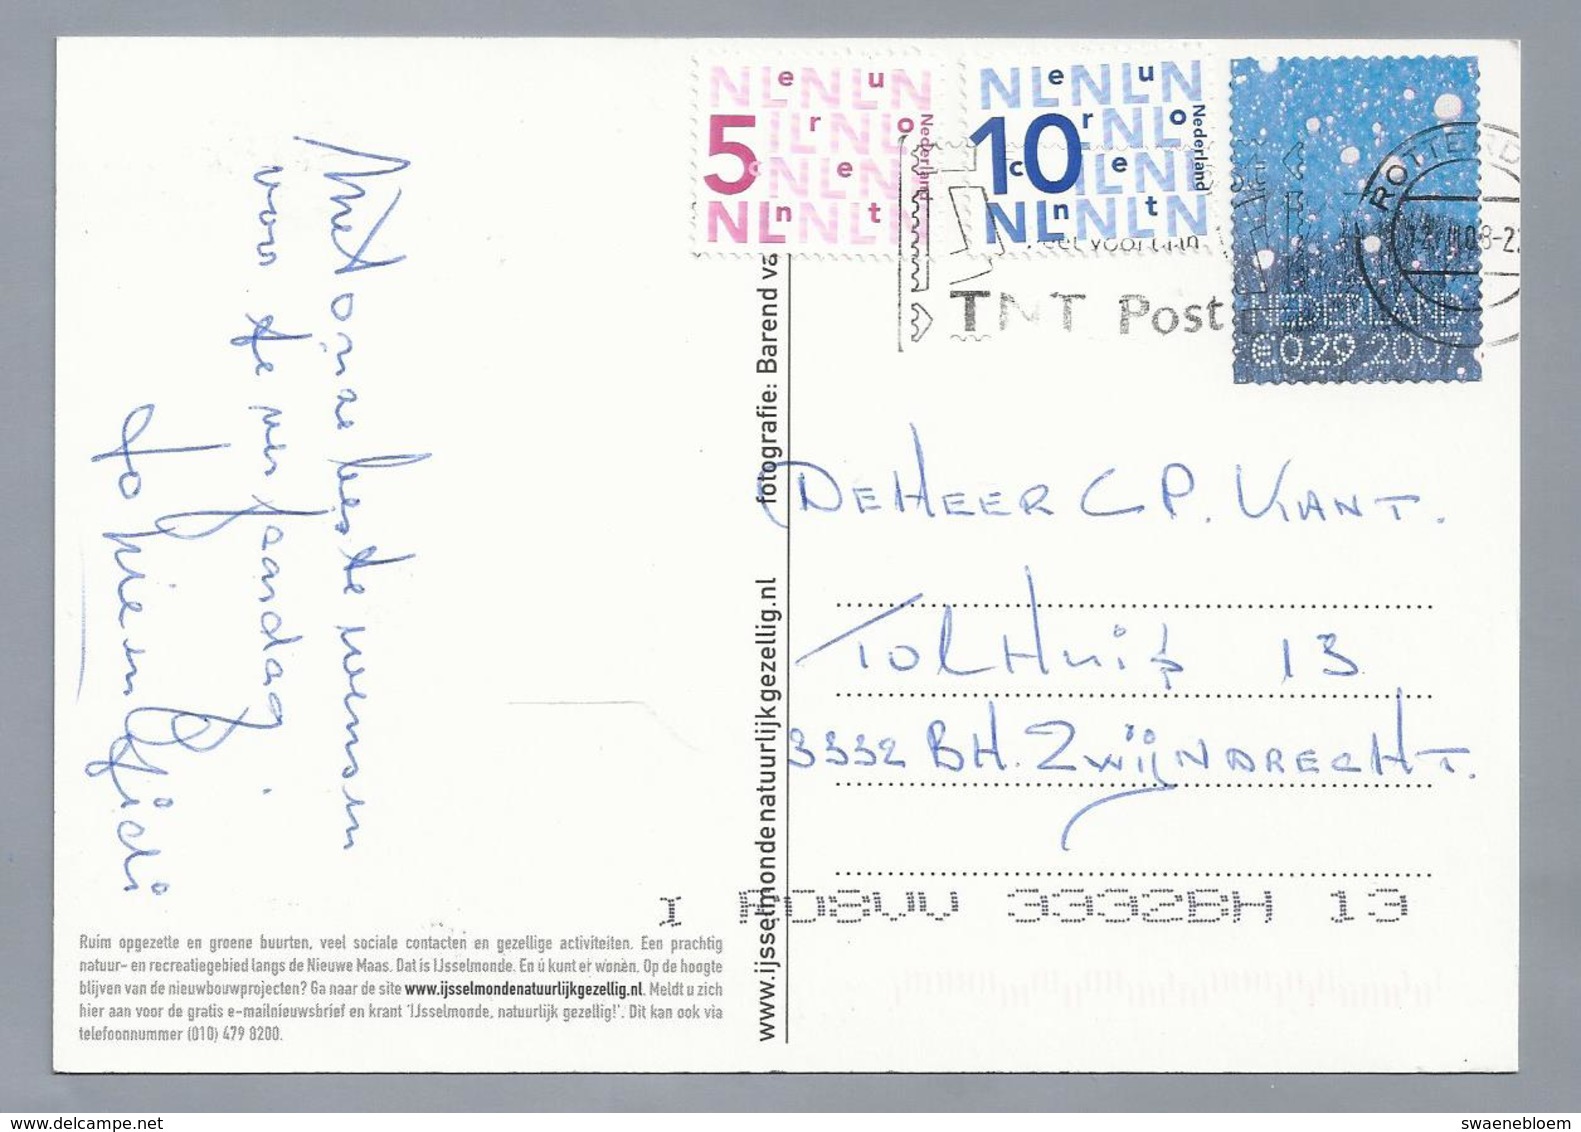 Met onze beste wensen
voor de verjaardag.
Jo Rie en Gidi
Ruim opgezette en groene buurten, veel sociale contacten en gezellige activiteiten. Een prachtig
natuur- en recreatiegebied langs de Nieuwe Maas. Dat is IJsselmonde. En ú kunt er wonen. Op de hoogte
blijven van de nieuwbouwprojecten? Ga naar de site www.ijsselmondenatuurlijkgezellig.nl. Meldt u zich
hier aan voor de gratis e-mailnieuwsbrief en krant 'IJsselmonde, natuurlijk gezellig!'. Dit kan ook via
telefoonnummer (010) 479 8200.
www.ijsselmondenatuurlijkgezellig.nl fotografie: Barend va
5 euro cent
Nederland
10 euro cent
Nederland
NEDERLAND
€0.29 2007
ROTTERD
TNT Post
DE HEER C P. KANT.
TOLHUIS 13
3332 BH. ZWIJNDRECHT.
3332BH 13
delcampe.net
swaenebloem